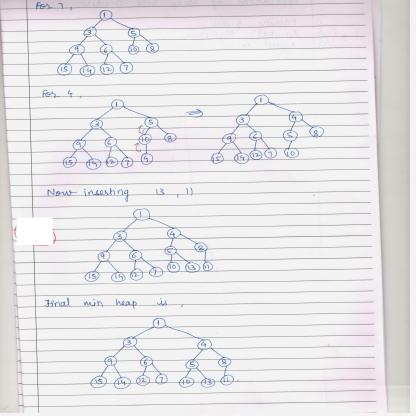 For 7,
1
3 5
9 6 10 8
15 14 12 7
For 4,
1 ⇒ 1
3 5 3 4
9 6 10 8 9 6 5 8
15 14 12 7 4 15 14 12 7 10
Now inserting 13, 11
1
3 4
9 6 5 8
15 14 12 7 10 13 11
Final min heap is,
1
3 4
9 6 5 8
15 14 12 7 10 13 11